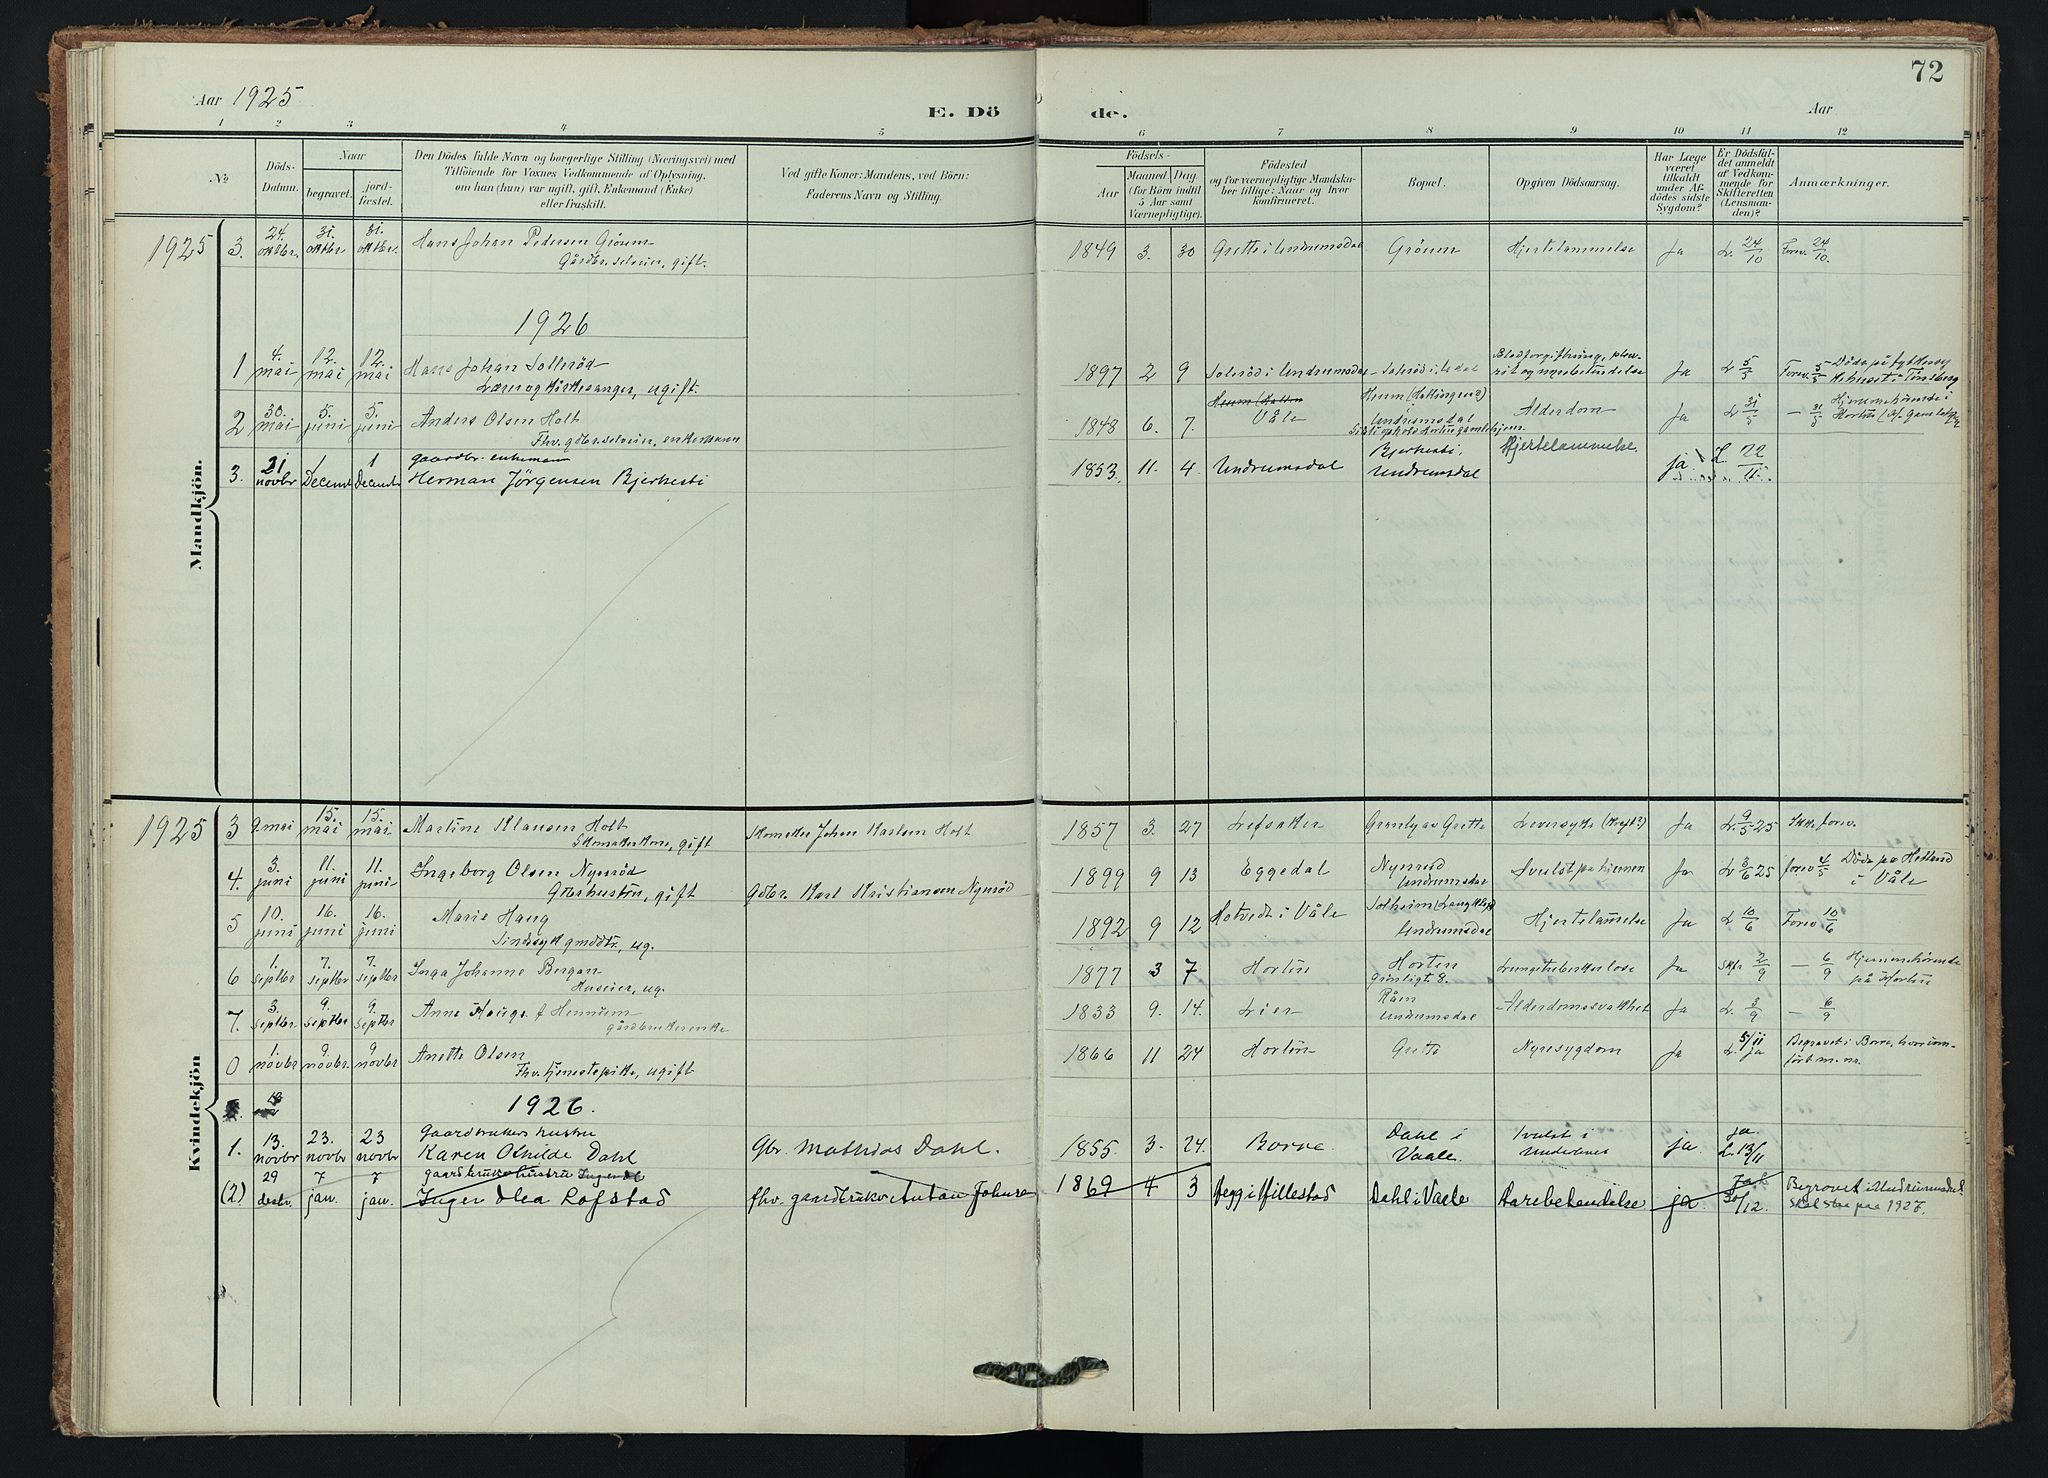 72
Aar 1925
E. Dö
de.
Aar
1 2 3 4 5 6 7 8 9 10 11 12
No
Döds-
Datum.
Naar
begravet.
jord-
fæstet.
Den Dödes fulde Navn og borgerlige Stilling (Næringsvei) med
Tilföiende for Voxnes Vedkommende af Oplysning,
om han (hun) var ugift, gift, Enkemand (Enke)
eller fraskilt.
Ved gifte Koner: Mandens, ved Börn:
Faderens Navn og Stilling.
Födsels-
Aar
Maaned. Dag.
(for Börn indtil
5 Aar samt
Værnepligtige).
Födested
og for værnepligtige Mandska-
ber tillige: Naar og hvor
konfirmeret.
Bopæl.
Opgiven Dödsaarsag.
Har Læge
været
tilkaldt
under Af-
dödes sidste
Sygdom?
Er Dödsfal-
det anmeldt
af Vedkom-
mende for
Skifteretten
(Lensman-
den)?
Anmærkninger.
Mandkjön.
1925 3. 24. oktbr. 31. oktbr 31. oktbr. Hans Johan Pedersen Gröum
Gårdbr. selveier, gift.
1849 3. 30 Grette i Undrumsdal Gröum Hjertelammelse Ja L. 24/10 Forev. 24/10.
1926
1 4. mai 12. mai 12. mai Hans Johan Solleröd
Lærer og kirkesanger, ugift.
1897 2 9 Soleröd i Undrumsdal Soleröd i Udal Blodforgiftning, pleu-
rit og nyrebetendelse Ja L 5/5 Forev. 5/5 Döde på fylkessy
kehuset i Tönsberg
2 30. mai 5. juni 5. juni Anders Olsen Holt
Fhv. gdbr. selveier, enkemann
1848 6. 7. Våle
Undrumsdal
Alderdom Ja L 31/5 — 31/5 Hjemmehörende i
3. 21 novbr 1 Decemb 1 Decembr gaardbr. enkemann
Herman Jörgensen Bjerkesti
1853. 11. 4. Undrumsdal Bjerkesti,
Undrumsdal Hjertelammelse. ja L. 22/11.
Kvindekjön
1925 3 9. mai 15. mai 15. mai Martine Klausen Holt
Skomakerkone, gift Skomaker Johan Karlsen Holt
1857 3. 27 Lefsaker Granly av Grette Leversyke (Kreft?) Ja L. 9/5 25 Ikke forev.
4. 3. juni 11. juni 11. juni Ingeborg Olsen Nyeröd
Gdbr. hustru, gift Gdbr. Karl Kristiansen Nyeröd
1899 9 13 Eggedal Nyeröd
Undrumsdal Svulst på hjernen Ja L 3/6 25 forev 4/5 Döde på Hetland
i Våle
5 10. juni 16. juni 16. juni Marie Haug
ug.
1892 9 12 Hotvedt i Våle Solheim
Undrumsdal Hjertelamelse Ja L 10/6 Forev 10/6
6 1. septbr 7. septbr 7. septbr Inga Johanne Bergan
Huseier, ug.
1877 3 7 Horten Horten
Lungetuberkulose Ja Skfr 2/9 — 6/9 Hjemmehörende
på Horten
7. 3. septbr. 9. septbr 9. septbr Anne Hauge f Hennum
gårdbrukerenke
1833 9. 14. Lier Råen
Undrumsdal Alderdomssvakhet Ja L. 3/9 — 6/9
0 1. novbr 9. novbr. 9 novbr Anette Olsen
Fhv. tjenestepike, ugift
1866 11 24 Horten Grette Nyresygdom Ja 5/11 L. ja Begravet i Borre, hvor inn-
fört m. nr.
1926.
1. 13. novbr 23. novbr 23 novbr Gaardbrukers hustru
Karen Othilde Dahl Gbr. Mathias Dahl.
1855. 3. 24. Borre Dahl i
Vaale. Svulst i
Underlivet ja. ja. L. 13/11
(2) 29 desbr. 7 jan. 7 jan. gaardbrukerhustru
Inger Olea Rofstad fhv. gaardbruker Anton Johnsen
1869 4 3 Hegg i Hillestad Dahl i Vaale Aarebetendelse ja Ja 30/12. Begravet i Undrumsdal
Skal staa paa 1927.